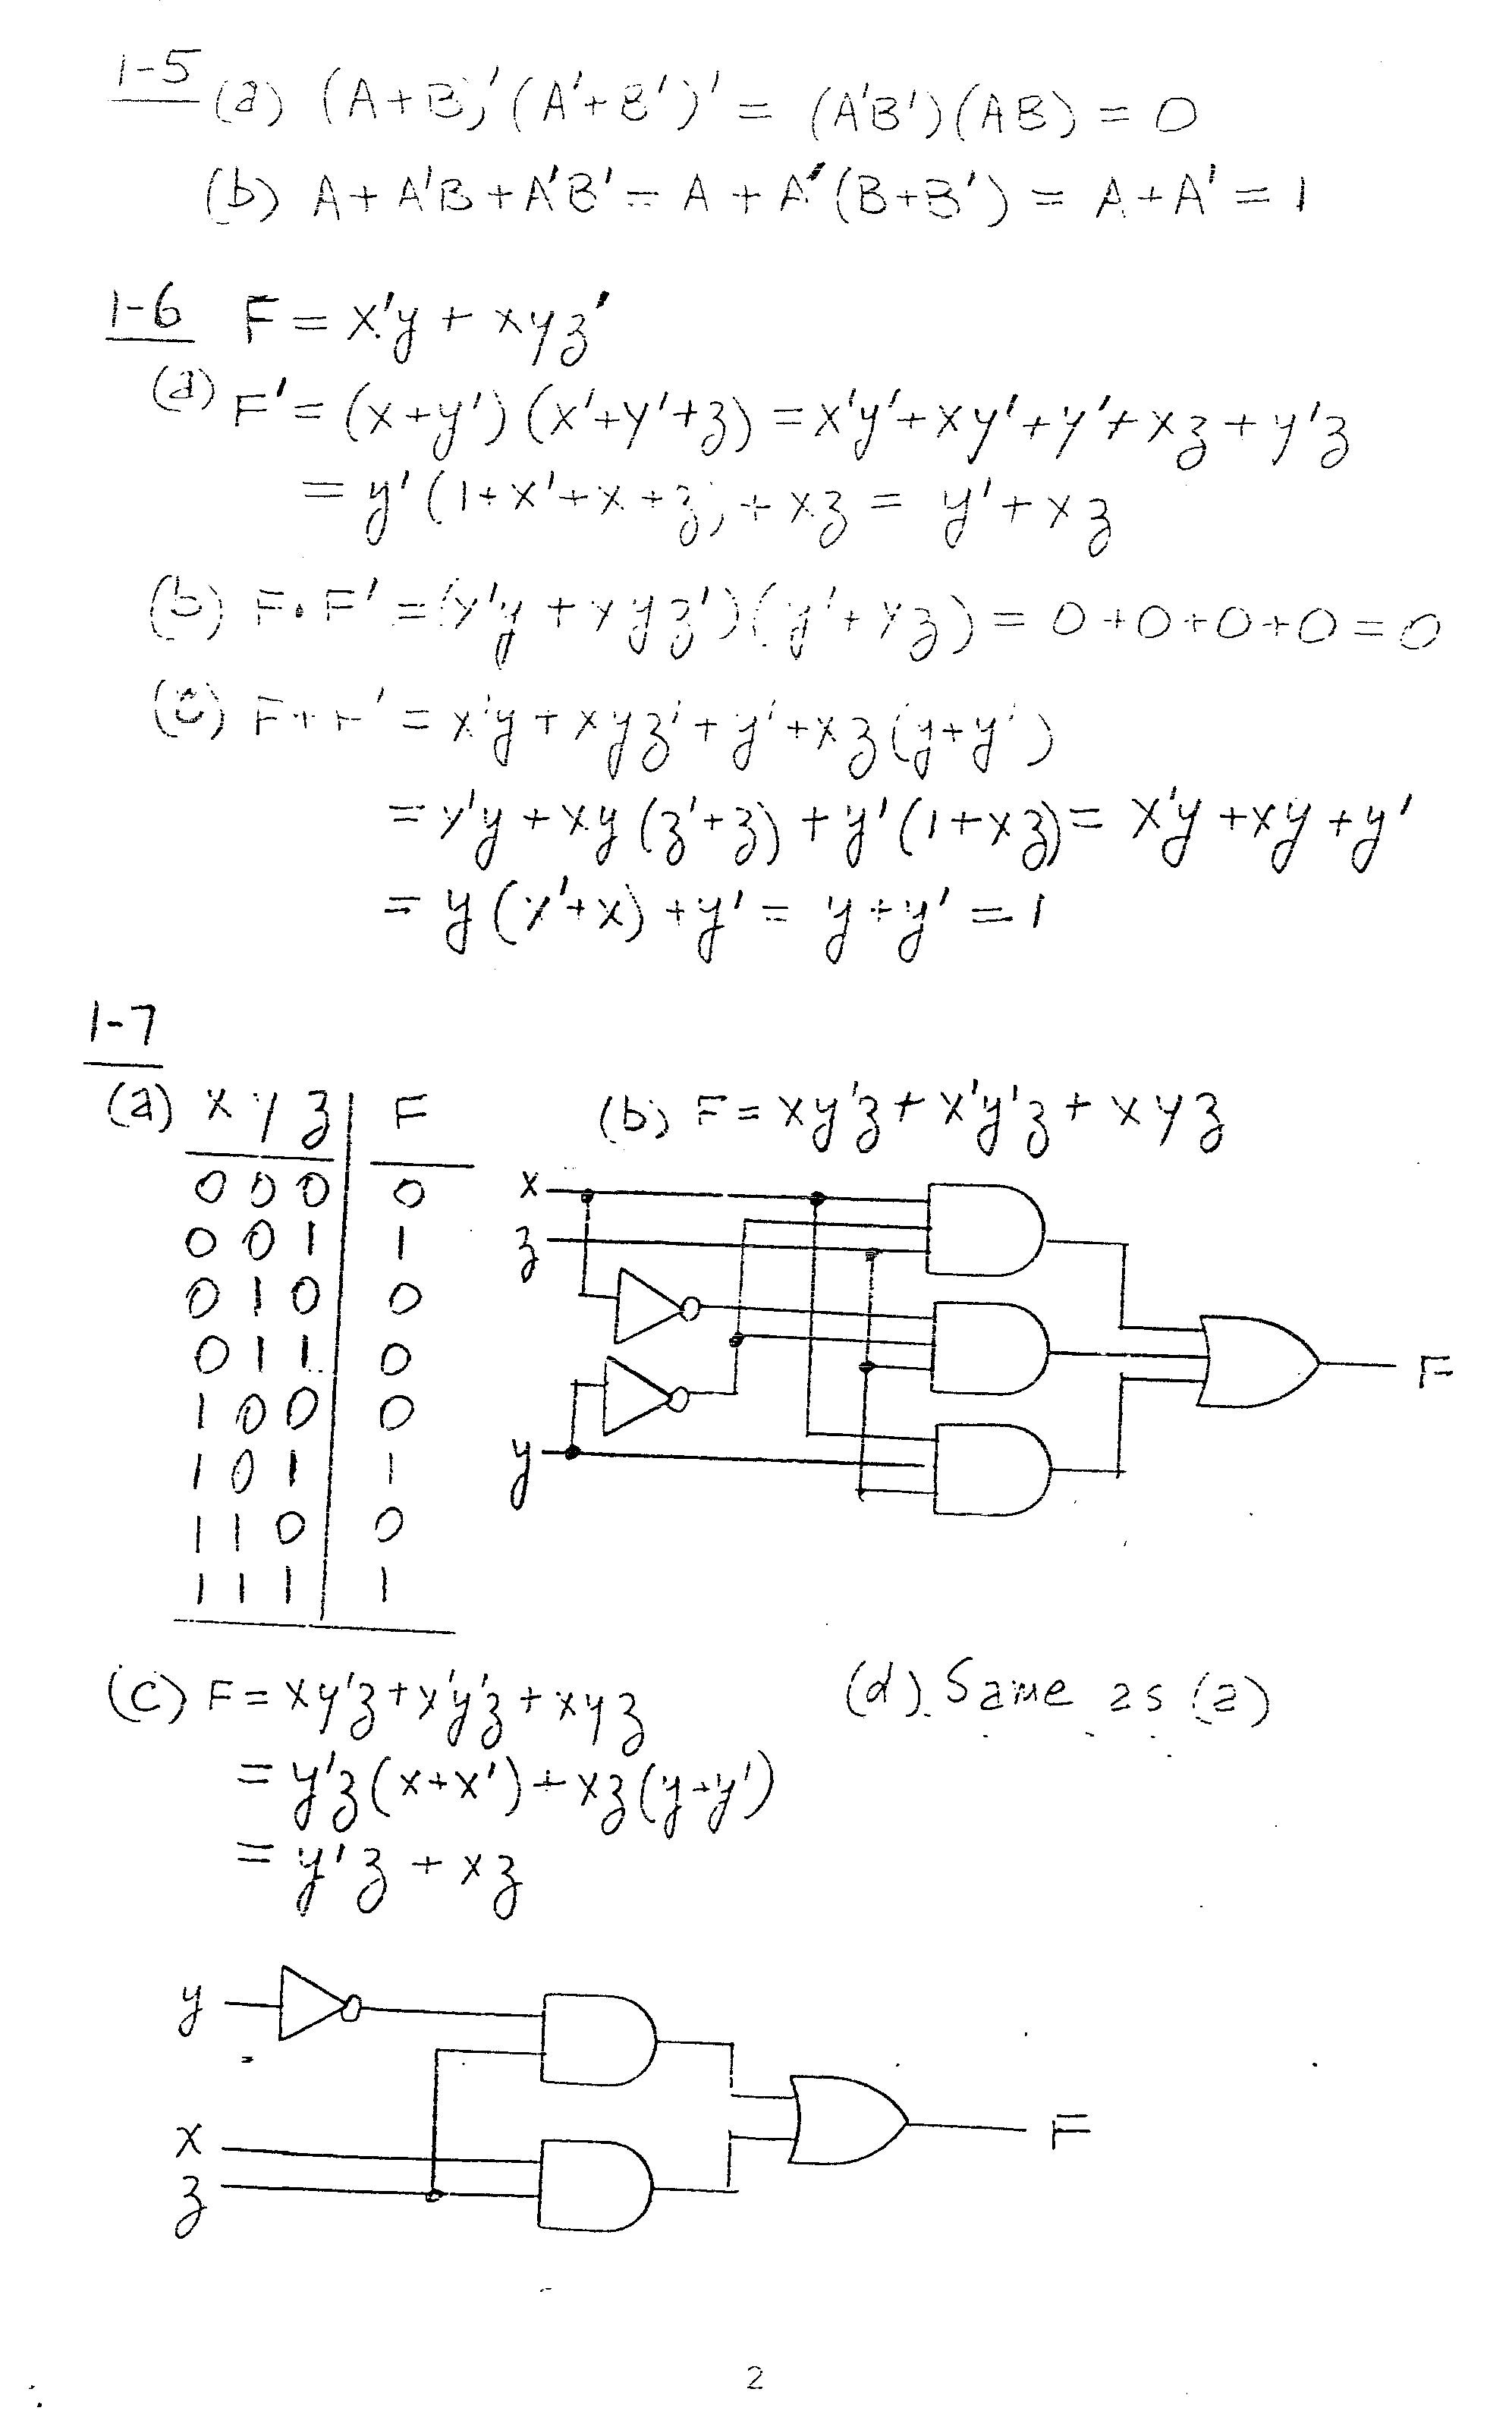 1-5 (a) (A+B)'(A'+B')' = (A'B')(AB) = 0
(b) A + A'B + A'B' = A + A'(B+B') = A+A' = 1
1-6 F = x'y + xyz'
(a) F' = (x+y')(x'+y'+z) = x'y'+xy'+y'+xz+y'z
= y'(1+x'+x+z) + xz = y'+xz
(b) F·F' = (x'y + xyz')(y'+xz) = 0+0+0+0 = 0
(c) F+F' = x'y + xyz' + y' + xz(y+y')
= x'y + xy(z'+z) + y'(1+xz) = x'y + xy + y'
= y(x'+x) + y' = y+y' = 1
1-7
(a) x y z F
0 0 0 0
0 0 1 1
0 1 0 0
0 1 1 0
1 0 0 0
1 0 1 1
1 1 0 0
1 1 1 1
(b) F = xy'z + x'y'z + xyz
x
z
y
F
(c) F = xy'z + x'y'z + xyz
= y'z(x+x') + xz(y+y')
= y'z + xz
(d) Same as (a)
y
x
z
F
2